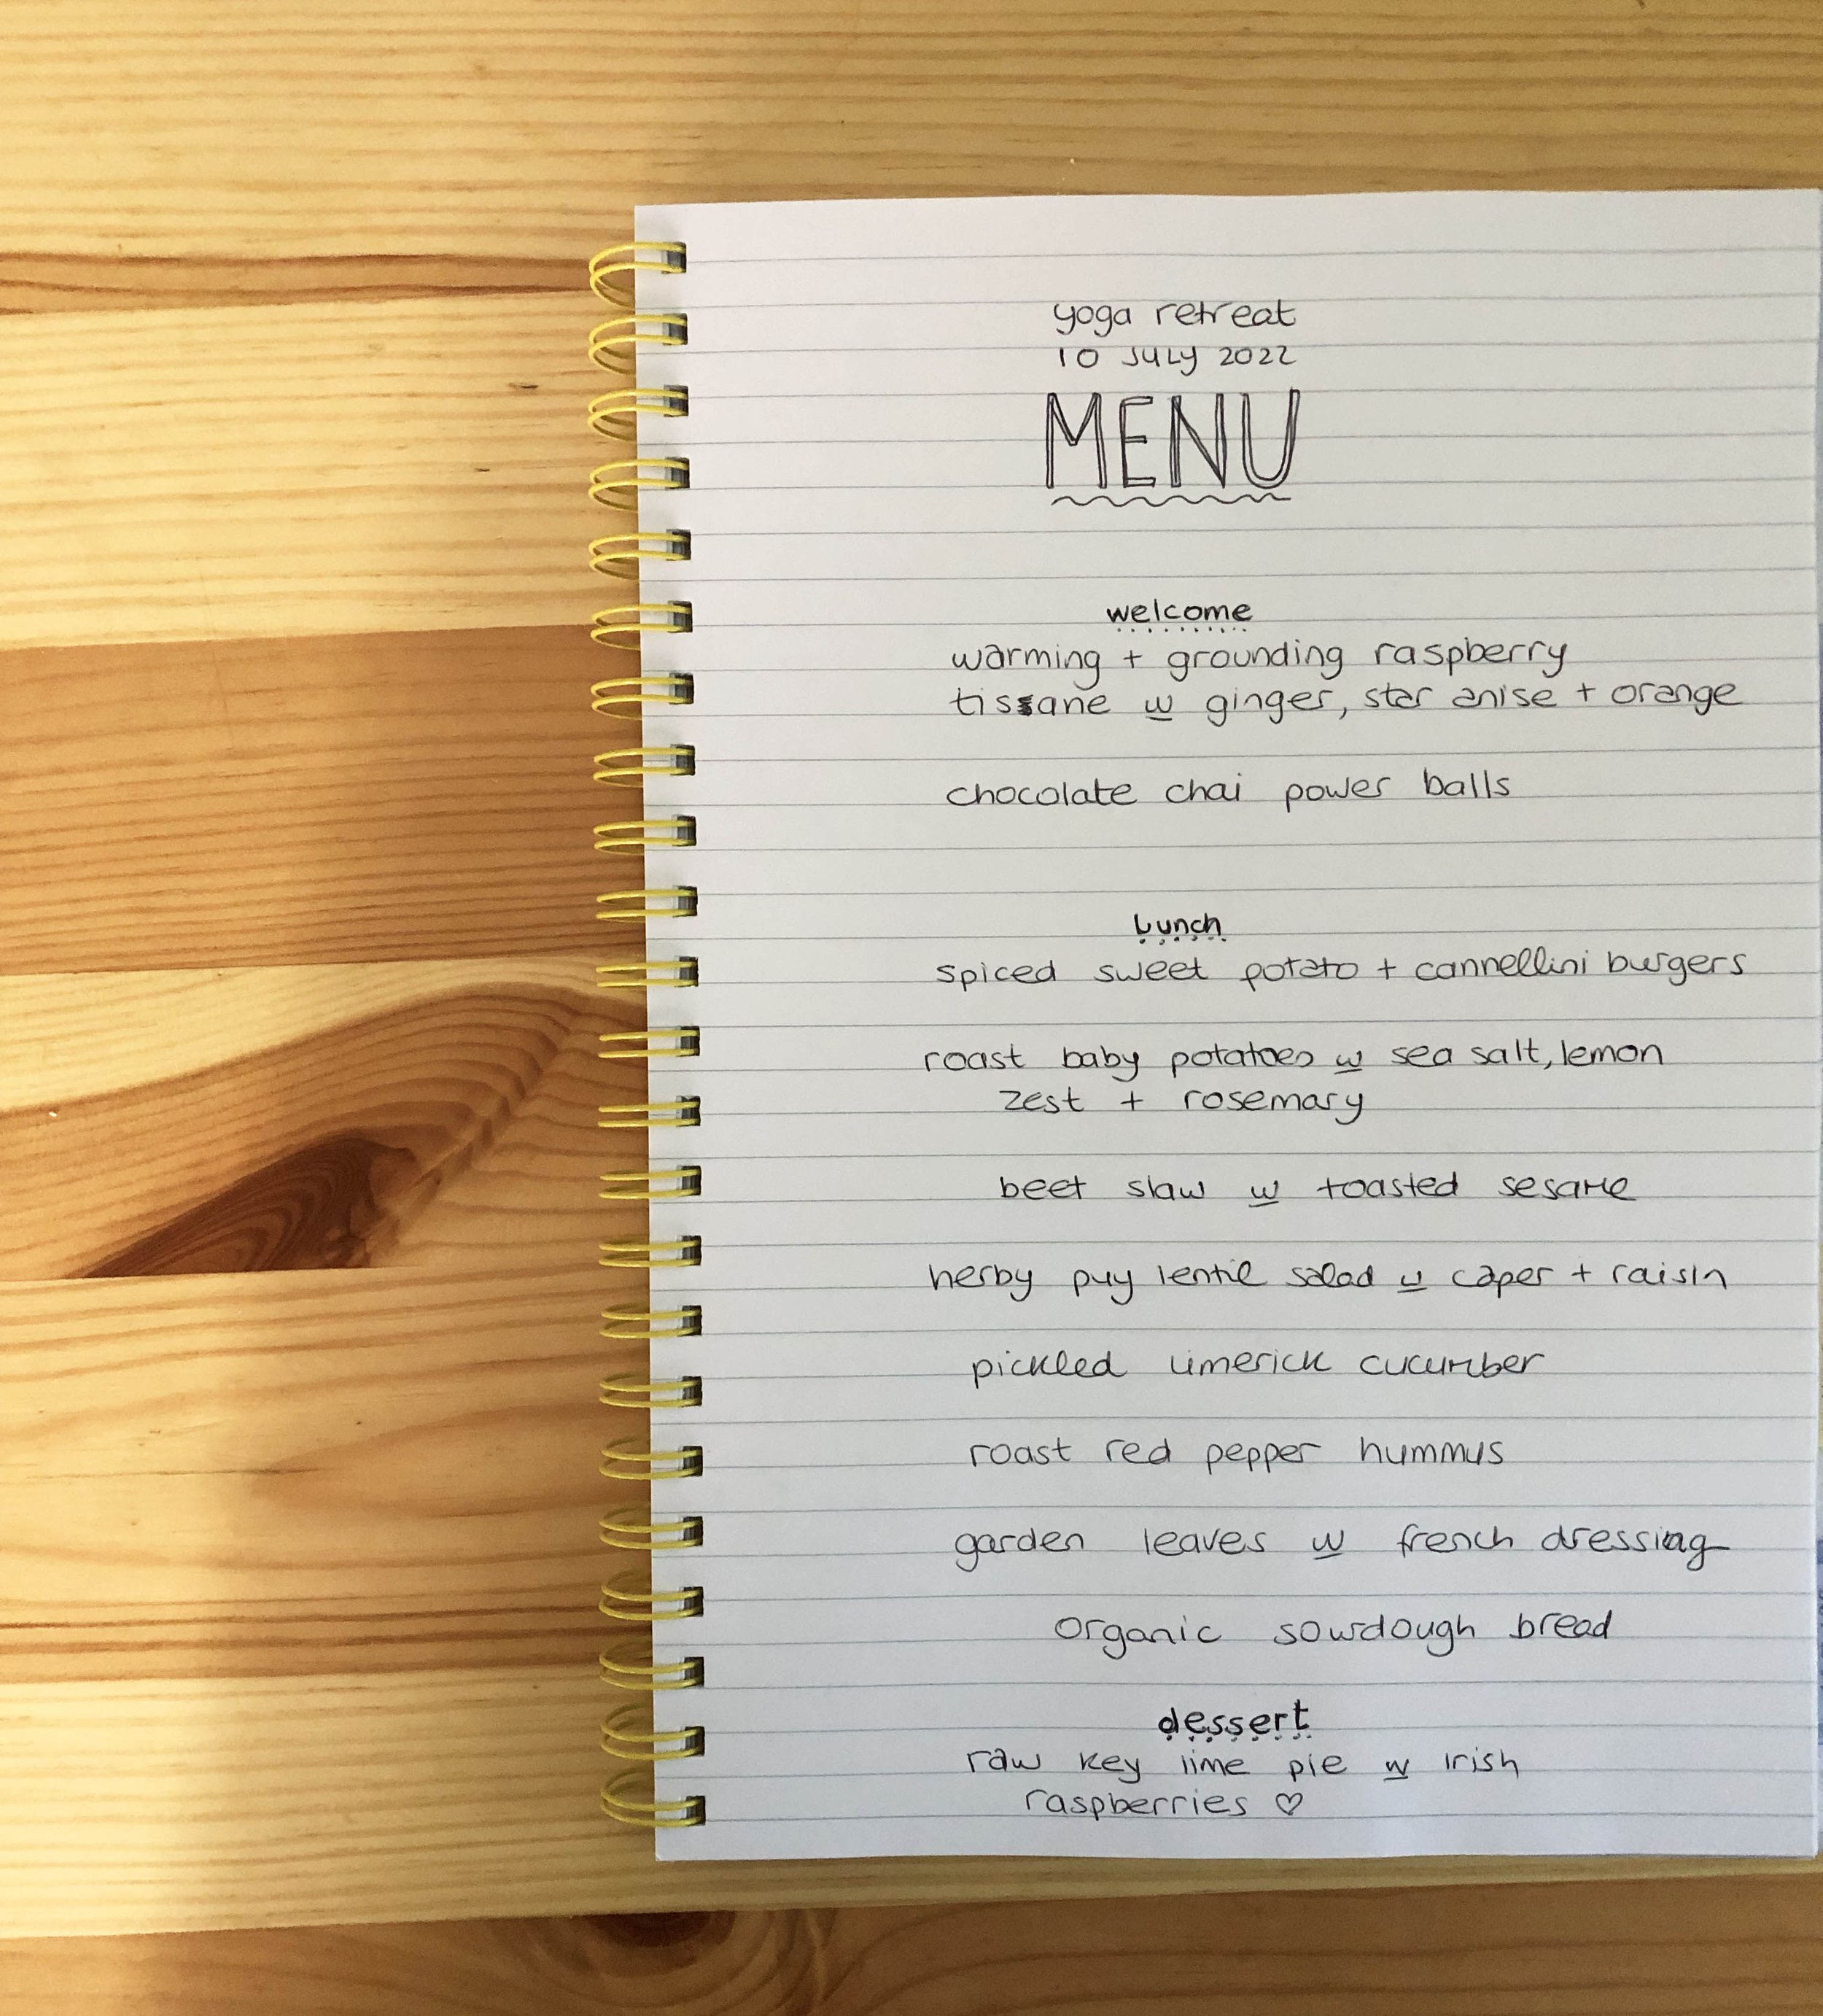 yoga retreat
10 JULY 2022
MENU
welcome
warming + grounding raspberry
tissane w ginger, star anise + orange
chocolate chai power balls
Lunch
spiced sweet potato + cannellini burgers
roast baby potatoes w sea salt, lemon
zest + rosemary
beet slaw w toasted sesame
herby puy lentil salad w caper + raisin
pickled limerick cucumber
roast red pepper hummus
garden leaves w french dressing
organic sourdough bread
dessert
raw key lime pie w Irish
raspberries ♡